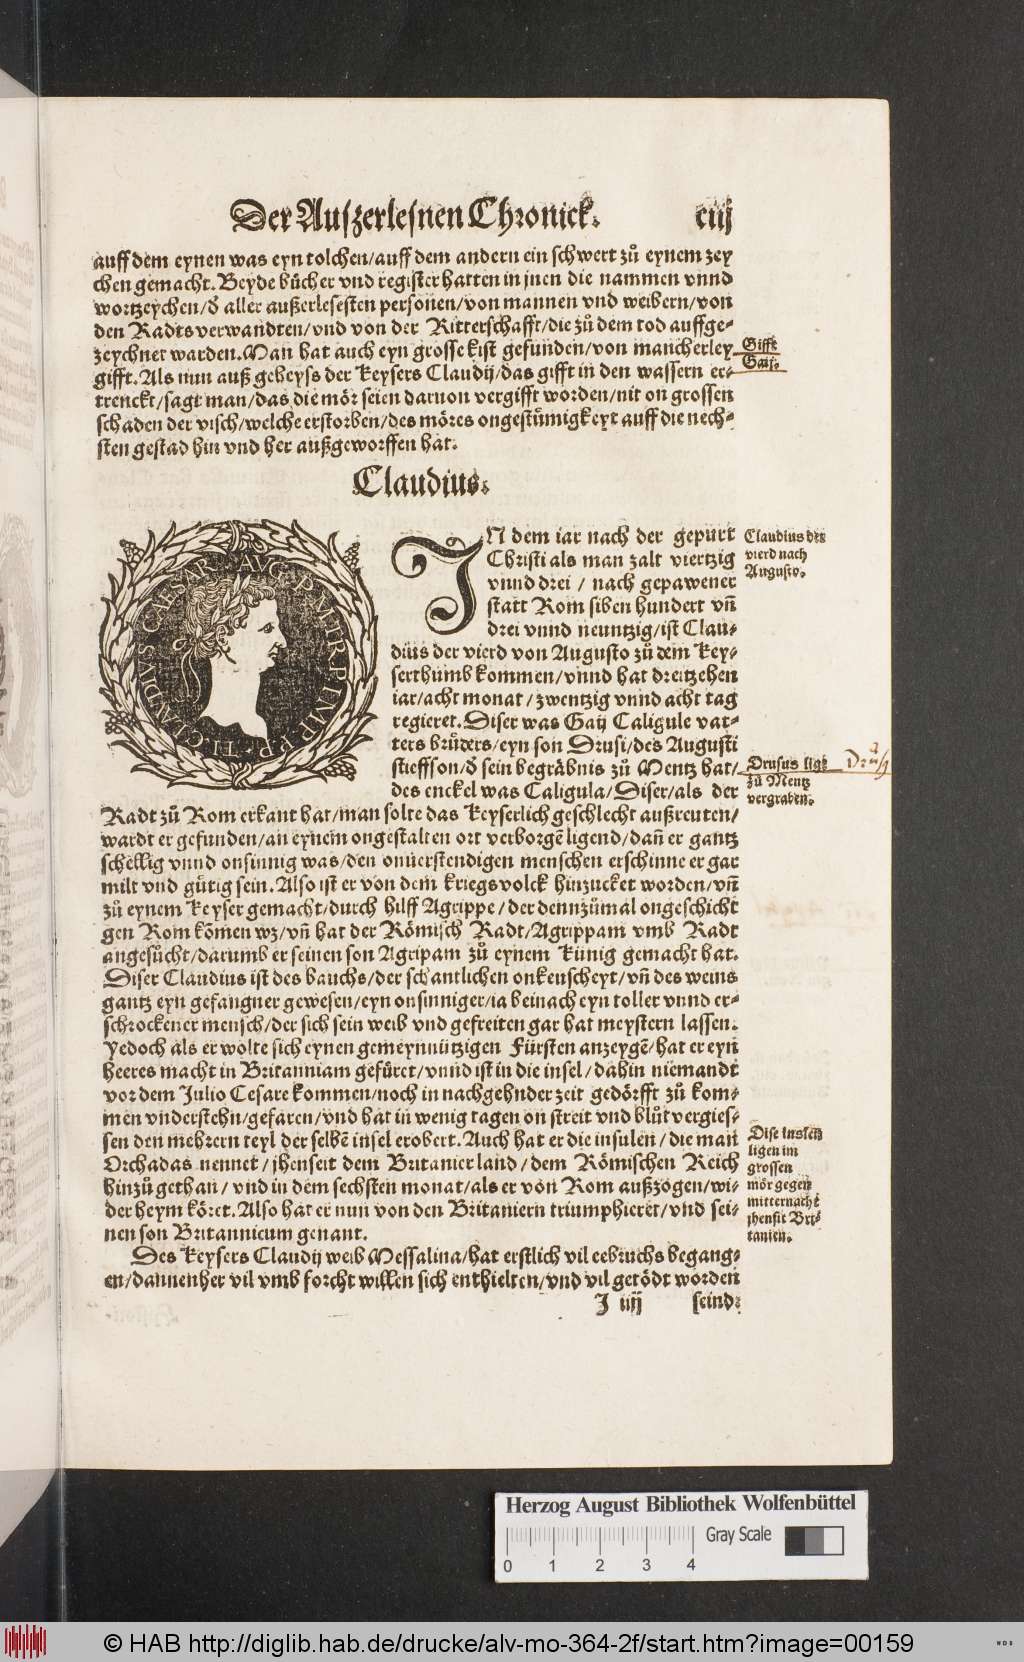 Der Auſzerleſnen Chronick. ciij
auff dem eynen was eyn tolchen/auff dem andern ein ſchwert zů eynem zey
chen gemacht. Beyde bůcher vnd regiſter hatten in jnen die nammen vnnd
wortzeychen/ď aller außerleſeſten perſonen/von mannen vnd weibern/von
den Radts verwandten/vnd von der Ritterſchafft/die zů dem tod auffge⸗
zeychnet warden. Man hat auch eyn groſſe kiſt gefunden/von mancherley
gifft. Als nun auß geheyſs der Keyſers Claudij/das gifft in den waſſern er⸗
trenckt/ſagt man/das die mör ſeien daruon vergifft worden/nit on groſſen
ſchaden der viſch/welche erſtorben/des möres ongeſtůmigkeyt auff die nech⸗
ſten geſtad hin vnd her außgeworffen hat.
Gifft
Gaij.
Claudius.
TI·CLAVDIVS CAESAR·AVG·P·M·TR·P·IMP·P·P·
IN dem iar nach der gepurt
Chriſti als man zalt viertzig
vnnd drei / nach gepawener
ſtatt Rom ſiben hundert vñ
drei vnnd neuntzig/iſt Clau⸗
dius der vierd von Auguſto zů dem Key⸗
ſerthumb kommen/vnnd hat dreitzehen
iar/acht monat/zwentzig vnnd acht tag
regieret. Diſer was Gaij Caligule vat⸗
ters brůders/eyn ſon Druſi/des Auguſti
ſtieffſon/ď ſein begräbnis zů Mentz hat/
des enckel was Caligula/Diſer/als der
Radt zů Rom erkant hat/man ſolte das Keyſerlich geſchlecht außreuten/
wardt er gefunden/an eynem ongeſtalten ort verborgē ligend/dañ er gantz
ſchellig vnnd onſinnig was/den onuerſtendigen menſchen erſchinne er gar
milt vnd gůtig ſein. Alſo iſt er von dem kriegsvolck hinzucket worden/vñ
zů eynem Keyſer gemacht/durch hilff Agrippe/der dennzůmal ongeſchicht
gen Rom kōmen wz/vñ hat der Römiſch Radt/Agrippam vmb Radt
angeſůcht/darumb er ſeinen ſon Agripam zů eynem Künig gemacht hat.
Diſer Claudius iſt des bauchs/der ſchantlichen onkeuſcheyt/vñ des weins
gantz eyn gefangner geweſen/eyn onſinniger/ia beinach eyn toller vnnd er⸗
ſchrockener menſch/der ſich ſein weib vnd gefreiten gar hat meyſtern laſſen.
Yedoch als er wolte ſich eynen gemeynnützigen Fürſten anzeygē/hat er eyn
heeres macht in Britanniam gefüret/vnnd iſt in die inſel/dahin niemandt
vor dem Julio Ceſare kommen/noch in nachgehnder zeit gedörfft zů kom⸗
men vnderſtehn/gefaren/vnd hat in wenig tagen on ſtreit vnd blůt vergieſ⸗
ſen den mehrern teyl der ſelbē inſel erobert. Auch hat er die inſulen/die man
Orchadas nennet/jhenſeit dem Britanier land/dem Römiſchen Reich
hinzů gethan/vnd in dem ſechſten monat/als er von Rom außzogen/wi⸗
der heym köret. Alſo hat er nun von den Britaniern triumphieret/vnd ſei⸗
nen ſon Britannicum genant.
Des Keyſers Claudij weib Meſſalina/hat erſtlich vil eebruchs begang⸗
en/dannenher vil vmb forcht willen ſich enthielten/vnd vil getödt worden
J iiij ſeind:
Claudius der
vierd nach
Auguſto.
Druſus ligt
zů Mentz
vergraben.
Diſe inſeln
ligen im
groſſen
mör gegen
mitternacht
jhenſit Bri
tanien.
Herzog August Bibliothek Wolfenbüttel
0 1 2 3 4
Gray Scale
© HAB http://diglib.hab.de/drucke/alv-mo-364-2f/start.htm?image=00159